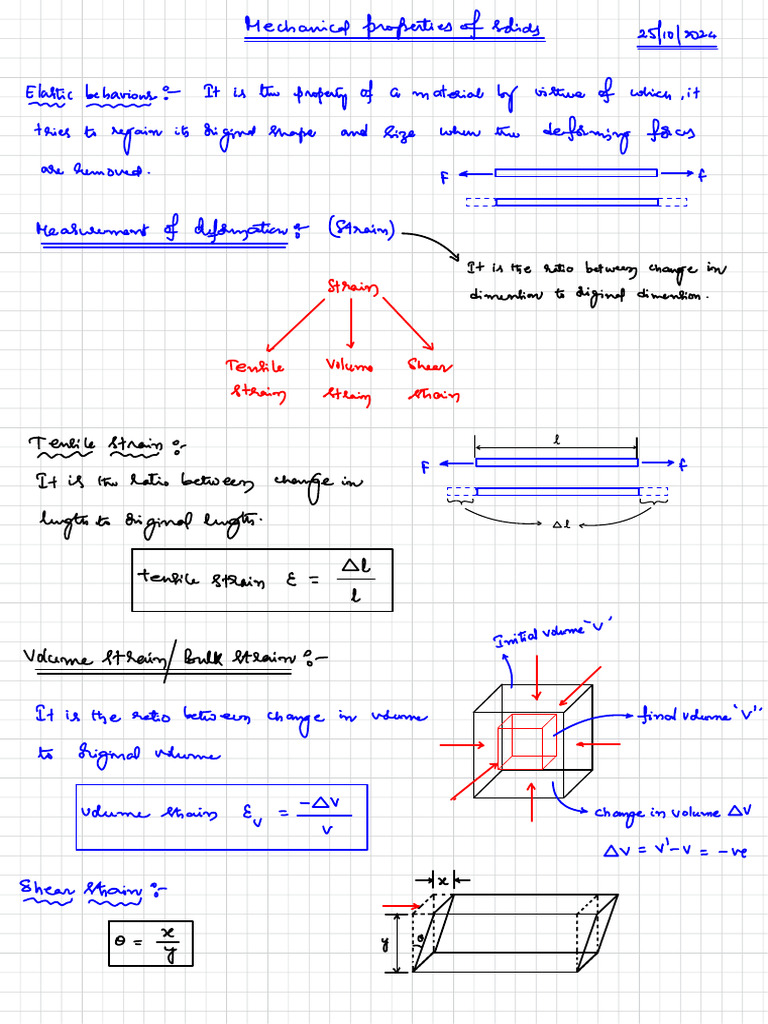 Mechanical properties of solids
25/10/2024
Elastic behaviour:- It is the property of a material by virtue of which, it
tries to regain its original shape and size when the deforming forces
are removed.
F F
Measurement of deformation:- (Strain)
It is the ratio between change in
dimention to original dimention.
Strain
Tensile Volume Shear
strain strain strain
Tensile strain:-
It is the ratio between change in
length to original length.
l
F F
Δl
tensile strain ε = Δl/l
Volume strain/Bulk strain:-
Initial volume "V"
It is the ratio between change in volume
to original volume
final volume "V'"
volume strain εv = -ΔV/V
change in volume ΔV
ΔV = V'-V = -ve
Shear strain:-
θ = x/y
x
y
θ